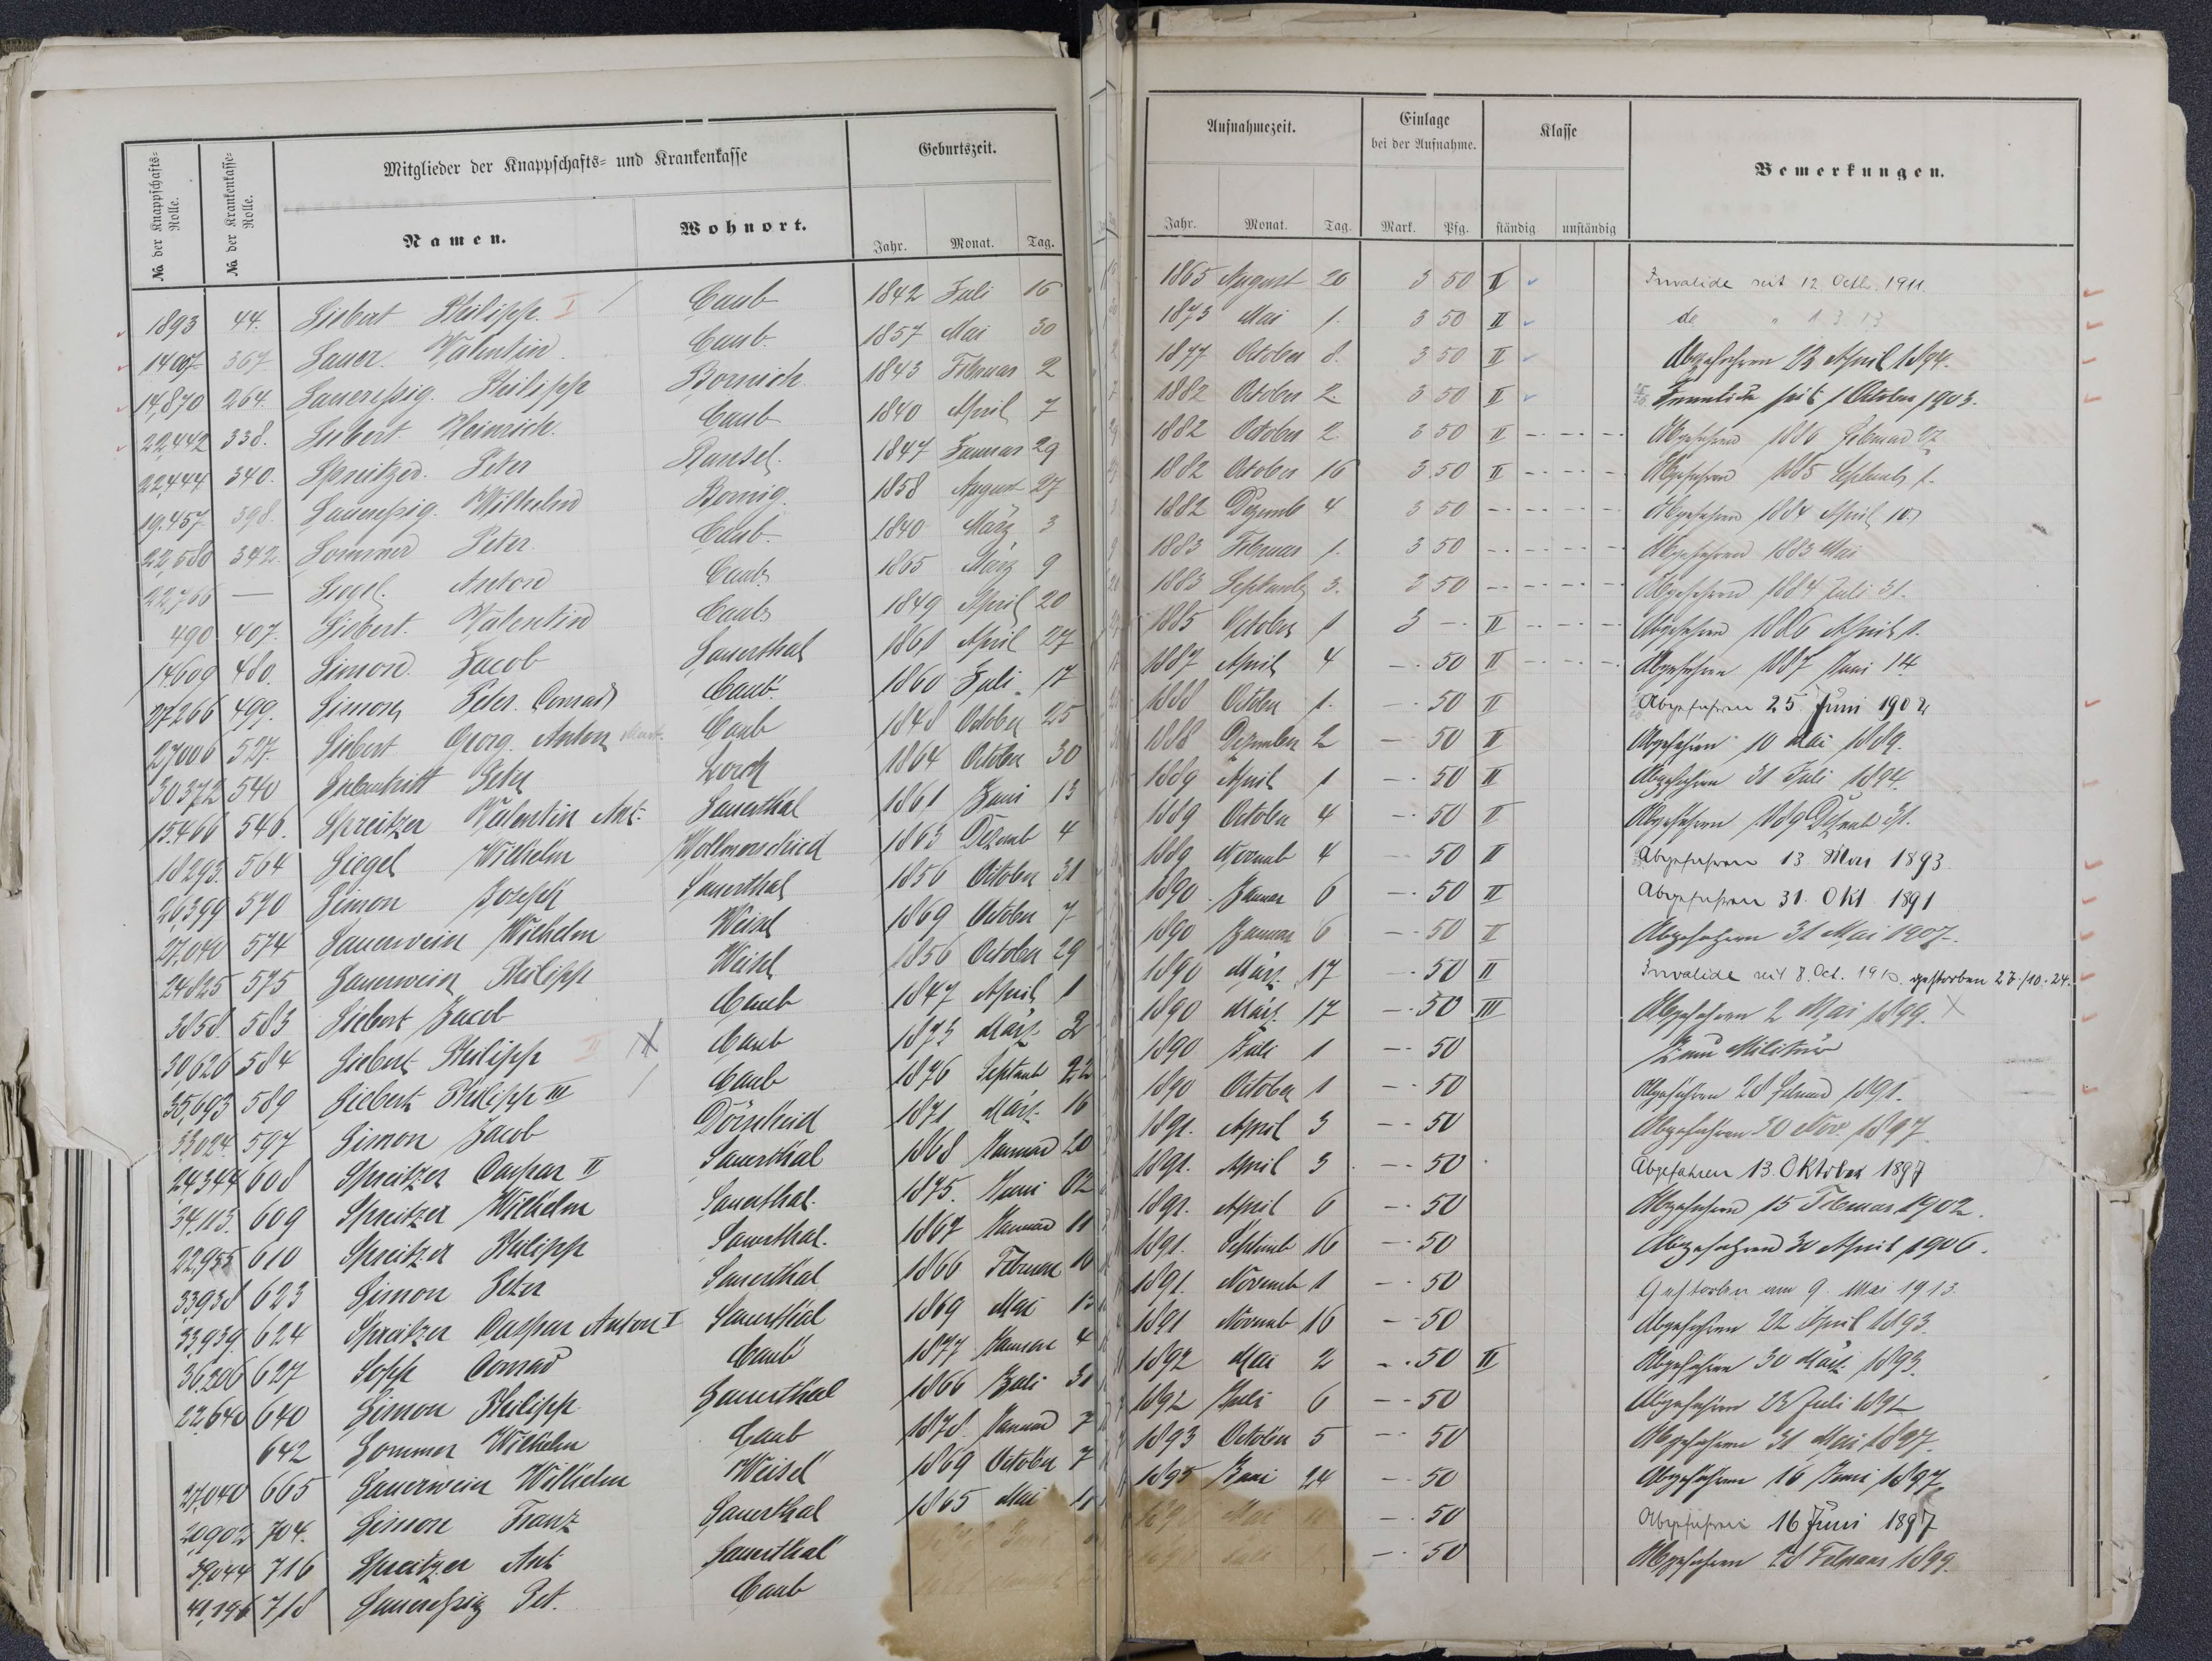 Mitglieder der Knappschafts- und Krankenkasse
Geburtszeit.
No. der Knappschafts-Rolle.
No. der Krankenkasse-Rolle.
Namen.
Wohnort.
Jahr. Monat. Tag.
1893 44. Siebert Philipp. I Caub 1842 Juli 16
367 Sauer. Valentin. Caub 1857 Mai 30
14,870 264 Saueressig. Philipp Bornich 1843 Februar 2
22,442 338. Siebert. Heinrich. Caub 1840 April 7
22,444 340. Spreitzer. Peter Ransel. 1847 Januar 29
19.457 398. Saueressig. Wilhelm Bornig. 1858 August 27
22,580 342. Sommer Peter Caub. 1840 März 3
22,766 — Anton Caub 1865 März 9
490 407. Siebert. Valentin Caub 1849 April 20
14609 480. Simon. Jacob Sauerthal 1861 April 27
27266 499. Simon Peter Conrad Caub 1860 Juli 17
27006 527. Siebert Georg. Anton Caub 1848 October 25
30372 540 Peter Lorch 1864 October 30
15466 546. Spreitzer Valentin Ant. Sauerthal 1861 Juni 13
18293. 564 Siegel Wilhelm Wollmerschied 1863 Dezemb 4
26399 570 Simon Joseph Sauerthal 1856 October 31
27,040 574 Sauerwein Wilhelm Weisel 1869 October 7
24825 575 Sauerwein Philipp Weisel 1856 October 29
3858. 583 Siebert Jacob Caub 1847 April 1
30,626 584 Siebert Philipp II Caub 1873 März 2
35,693 589 Siebert Philipp III Caub 1876 Septemb 22
33024. 597 Simon Jacob Dörscheid 1871 März 16
24344 608 Spreitzer Caspar II Sauerthal 1868 Januar 20
34,113. 609 Spreitzer Wilhelm Sauerthal. 1875. Juni 02
22,955 610 Spreitzer Philipp Sauerthal. 1867 Januar 11
33938 623 Simon Peter Sauerthal 1866 Februar 10
33,939. 624 Spreitzer Caspar Anton I Sauerthal 1869 Mai 13
36,206 627 Sopp Conrad Caub 1877 Januar 4
22,640 640 Simon Philipp Sauerthal 1866 Juli 31
642 Sommer Wilhelm Caub 1878 Januar 7
27,040 665 Sauerwein Wilhelm Weisel 1869 October 7
20,902 704. Simon Franz Sauerthal 1865 Mai 11
39,044 716 Spreitzer Ant Sauerthal
41,196 718 Saueressig Pet. Caub
Aufnahmezeit.
Einlage bei der Aufnahme.
Klasse
Bemerkungen.
Jahr. Monat. Tag. Mark. Pfg. ständig unständig
1865 August 20 3 50 II Invalide seit 12. Octb. 1911.
1873 Mai 1. 3 50 II do " 1 3 13
1877 October 8. 3 50 II Abgefahren 23 April 1894.
1882 October 2. 3 50 II Invalide seit 1 October 1903.
1882 October 2. 3 50 II Abgefahren 1886 Februar 27
1882 October 16 3 50 II Abgefahren 1885 Septemb 1.
1882 Dezemb 4 3 50 Abgefahren 1884 April 10.
1883 Februar 1. 3 50 Abgefahren 1883 Mai
1883 Septemb 3. 3 50 Abgefahren 1884 Juli 31.
1885 October 1 3 — II Abgefahren 1886 April 1.
1887 April 4 — 50 II Abgefahren 1887 Juni 14
1888 October 1. — 50 II Abgefahren 25 Juni 1902
1888 Dezember 2 — 50 II Abgefahren 10 Mai 1889.
1889 April 1 — 50 II Abgefahren 31 Juli 1894.
1889 October 4 — 50 II Abgefahren 1889 Dezemb 31.
1889 Novemb 4 — 50 II Abgefahren 13. Mai 1893
1890 Januar 6 — 50 II Abgefahren 31. Okt 1891
1890 Januar 6 — 50 II Abgefahren 31 Mai 1907.
1890 März 17 — 50 II Invalide seit 8. Oct. 1910. gestorben 27/10.24.
1890 März 17 — 50 III Abgefahren 2 Mai 1899. X
1890 Juli 1 — 50 zum Militär
1890 October 1 — 50 Abgefahren 28 Februar 1891.
1891. April 3 — 50 Abgefahren 30 Nov. 1897.
1891. April 3 — 50 Abgefahren 13. Oktober 1897
1891. April 6 — 50 Abgefahren 15 Februar 1902.
1891. Septemb 16 — 50 Abgefahren 30 April 1906.
1891. Novemb 1 — 50 Gestorben am 9. Mai 1913.
1891 Novemb 16 — 50 Abgefahren 22 April 1893.
1892 Mai 2 — 50 II Abgefahren 30 März 1893.
1892 Juli 6 — 50 Abgefahren 23 Juli 1892
1893 October 5 — 50 Abgefahren 31 Mai 1897.
1895 Juni 24 — 50 Abgefahren 16 Juni 1897.
Mai — 50 Abgefahren 16 Juni 1897
Juli — 50 Abgefahren 28 Februar 1899.